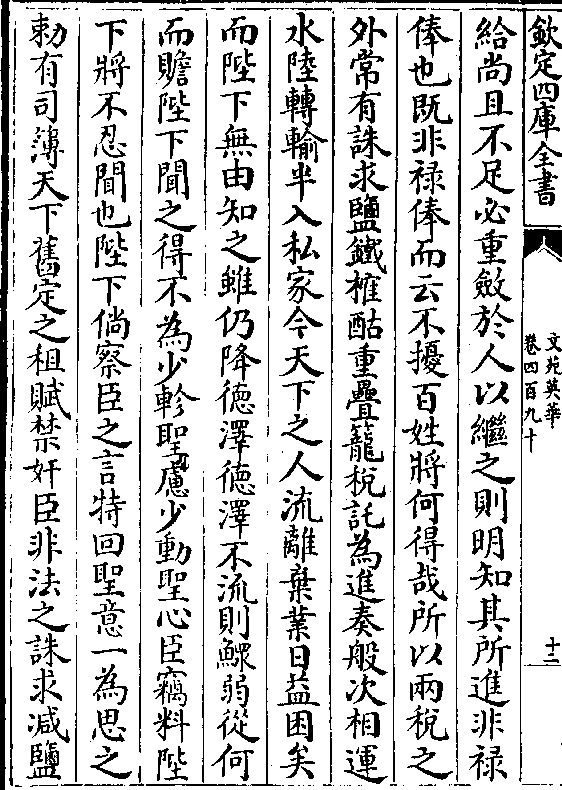 欽定四庫全書
文苑英華
卷四百九十
十二
給尚且不足必重斂於人以繼之則明知其所進非祿
俸也既非祿俸而云不擾百姓將何得哉所以兩稅之
外常有誅求鹽鐵榷酤重疊籠稅託為進奏般次相運
水陸轉輸半入私家今天下之人流離棄業日益困矣
而陛下無由知之雖仍降德澤德澤不流則鰥弱從何
而贍陛下聞之得不為少軫聖慮少動聖心臣竊料陛
下將不忍聞也陛下倘察臣之言特回聖意一為思之
勅有司薄天下舊定之租賦禁奸臣非法之誅求減鹽